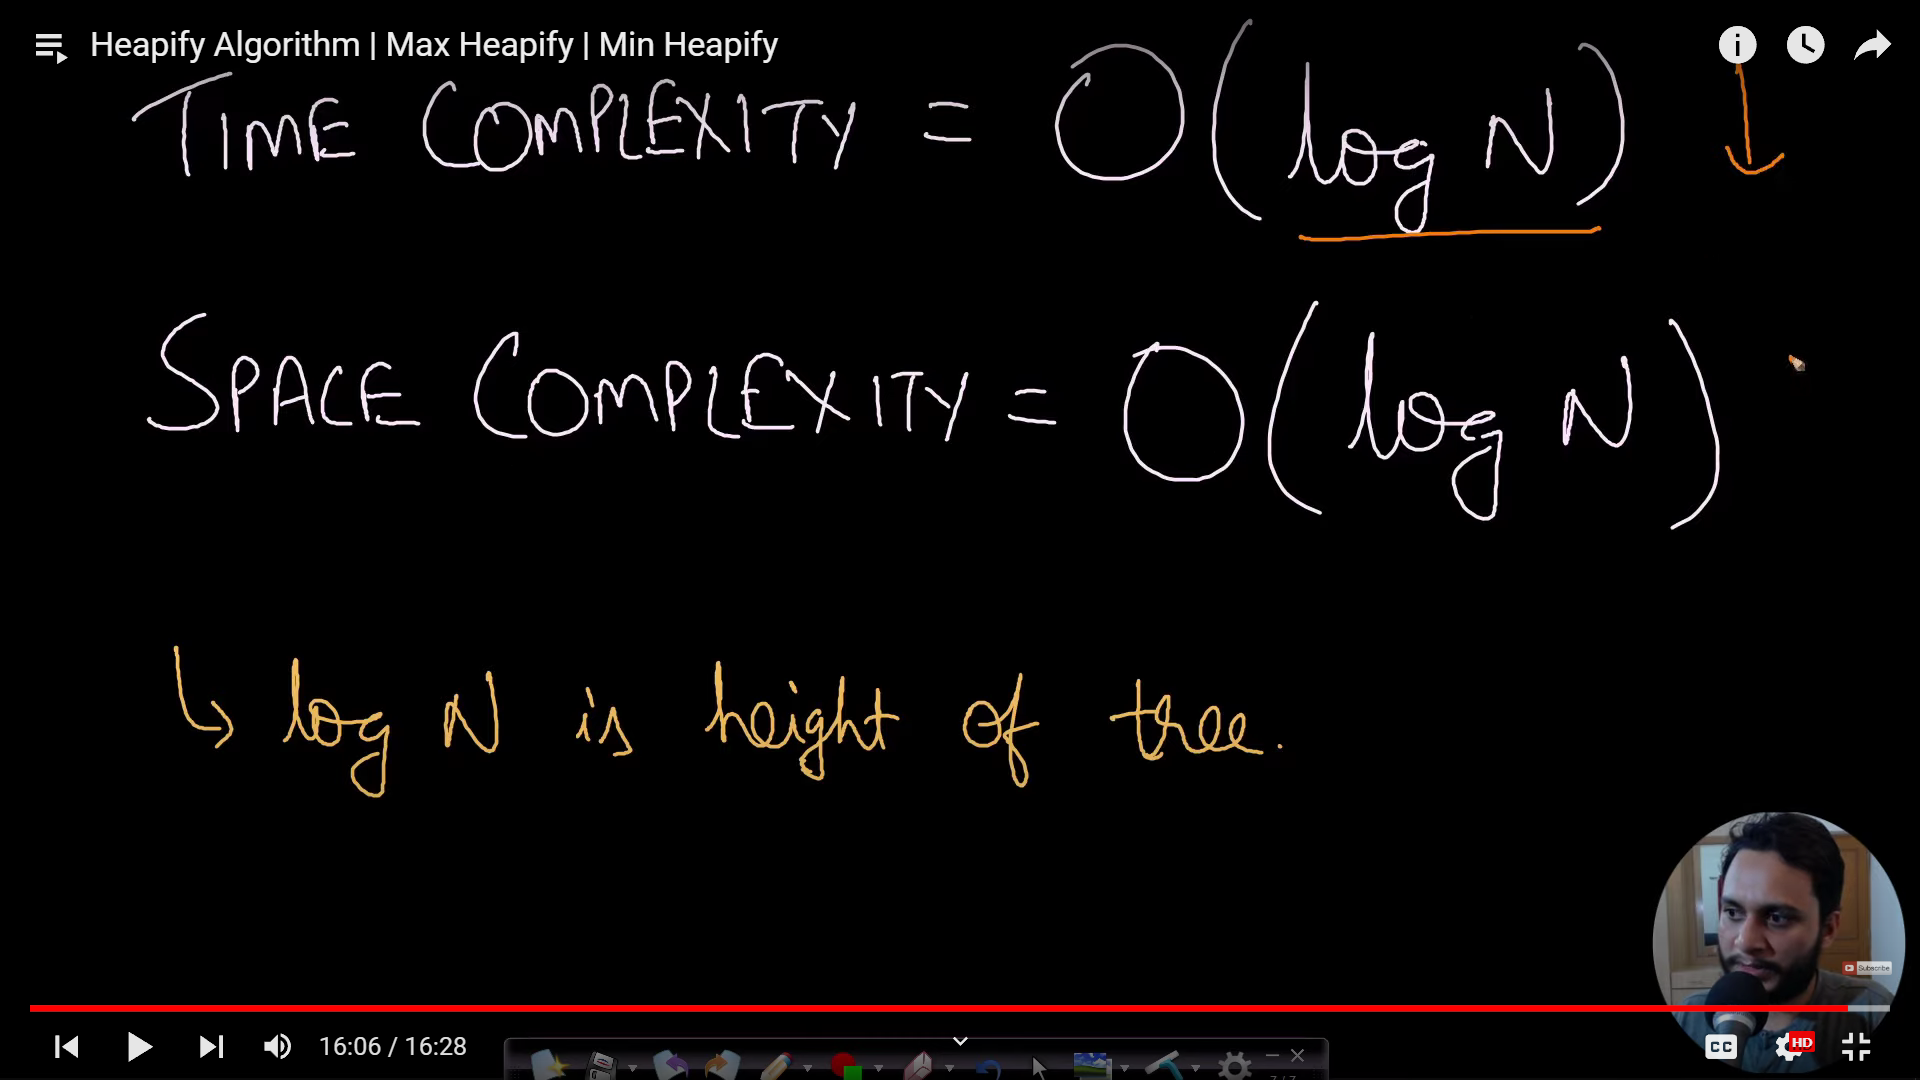 Heapify Algorithm | Max Heapify | Min Heapify
TIME COMPLEXITY = O(log N)
SPACE COMPLEXITY = O(log N)
log N is height of tree.
Subscribe
16:06 / 16:28
CC
HD